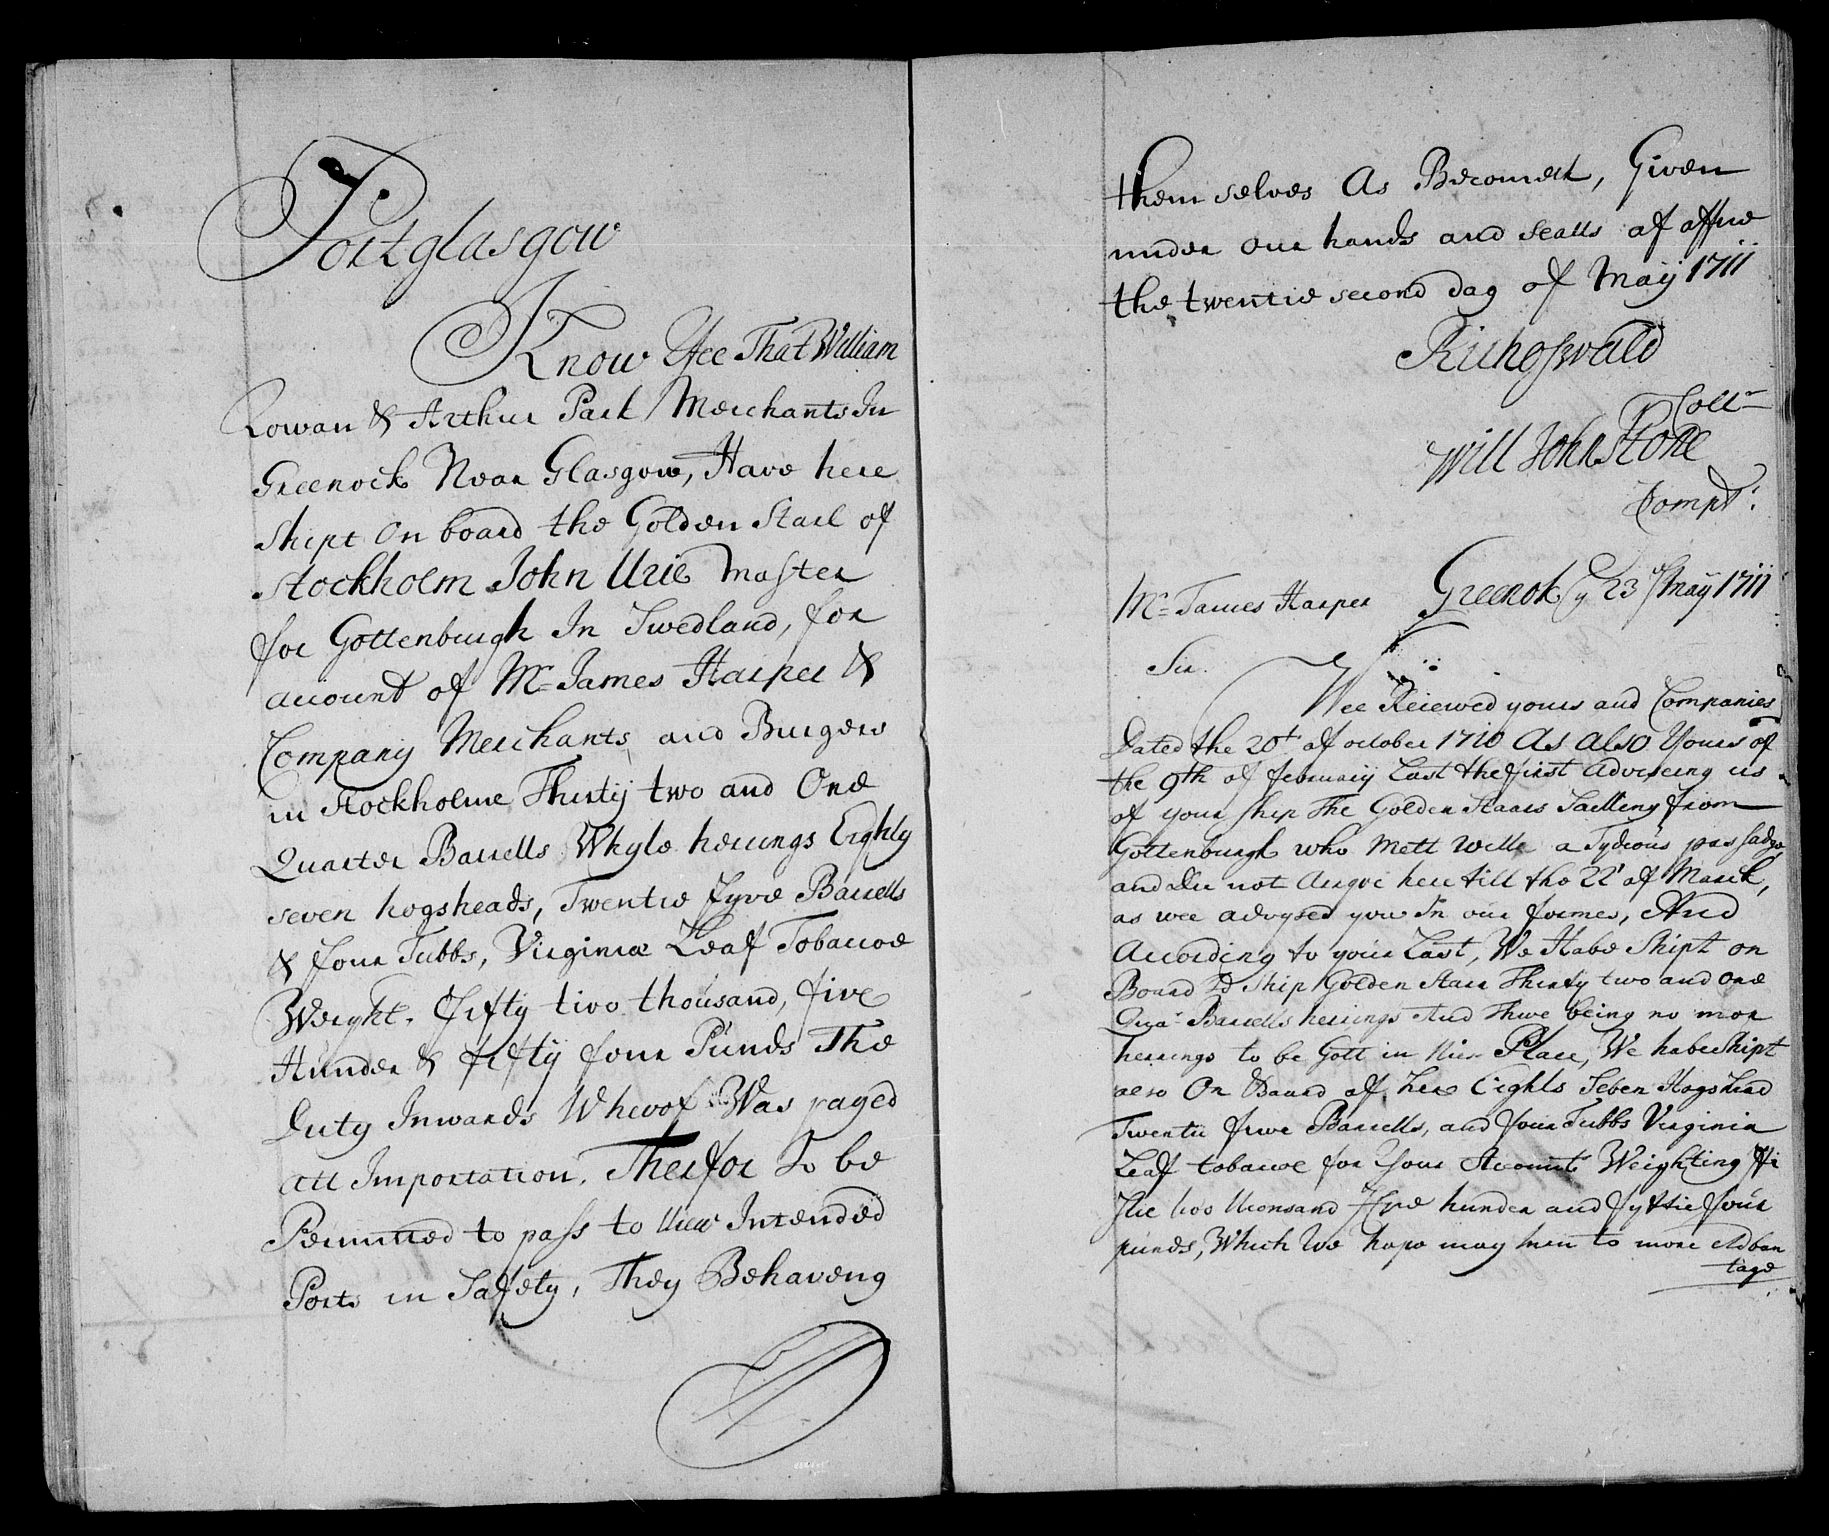 Portglasgow
Know Yee That William
Rowan & Arthur Park Merchants In
Greenock Near Glasgow, Have here
shipt on board the Golden Starr of
Stockholm John Urie Master
for Gottenburgh In Swedland, for
account of Mr James Harper &
Company Merchants and Burgers
in Stockholme Thirty two and One
Quarter Barrells Whyte herrings Eighty
seven hogsheads, Twentie fyve Barrells
& four Tubbs, Virginia Leaf Tobaccoe
Weight. fifty two thousand, five
Hunder & fifty four Punds The
Duty Inwards Wherof Was payed
att Importation. Therfor To be
Permitted to pass to their Intended
Ports in Safety, They Behaveng
themselves As Becometh, Given
under our hands and sealls of office
the twentie second day of May 1711
Rich Oswald
Collr
Will Johnstone
Compt:
Mr James Harper Greenok y 23 May 1711
Sir
Wee Receiewed yours and Companies
Dated the 20t of october 1710 As also Yours of
the 9th of february Last the first adviseing us
of your ship The Golden Staars Sailling from
Gottenburgh who Mett with a Tydious passadge
and did not Arryve here till the 22t of March,
as wee advysed you In our former, And
According to your Last, We Habe Shipt on
Board sd ship Golden Starr Thirty two and one
Quar Barrells herrings And There being no mor
herrings to be Gott in this Place, We habe Shipt
also On Board of her Eighty Seben Hogshead
Twentie fiwe Barrells, and four Tubbs Virginia
Leaf tobaccoe for Your Accounts Weighting ffi
ftie two thousand fyve hunder and fyftie four
punds, Which We hope may turn to more Adban
tage